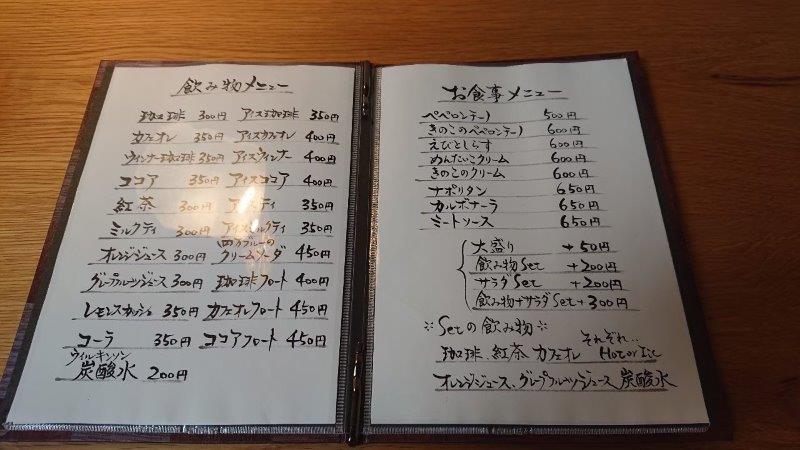 飲み物メニュー
珈琲 300円 アイス珈琲 350円
カフェオレ 350円 アイスカフェオレ 400円
ウィンナー珈琲 350円 アイスウィンナー 400円
ココア 350円 アイスココア 400円
紅茶 300円 アイスティ 350円
ミルクティ 300円 アイスミルクティ 350円
四万ブルーの
オレンジジュース 300円 クリームソーダ 450円
グレープフルーツジュース 300円 珈琲フロート 400円
レモンスカッシュ 350円 カフェオレフロート 450円
コーラ 350円 ココアフロート 450円
ウィルキンソン
炭酸水 200円
お食事メニュー
ペペロンチーノ 500円
きのこのペペロンチーノ 600円
えびとしらす 600円
めんたいこクリーム 600円
きのこのクリーム 600円
ナポリタン 650円
カルボナーラ 650円
ミートソース 650円
大盛り +50円
飲み物Set +200円
サラダSet +200円
飲み物+サラダSet +300円
※Setの飲み物※
それぞれ‥
珈琲、紅茶 カフェオレ Hot or Ice
オレンジジュース、グレープフルーツジュース 炭酸水